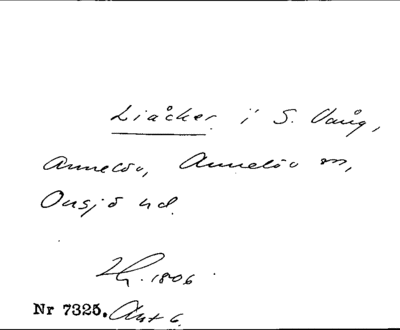 Liåcker i S. Vång,
Annelöv, Annelöv sn,
Onsjö hd.
Hg. 1806.
Nr 7325. Akt 6.